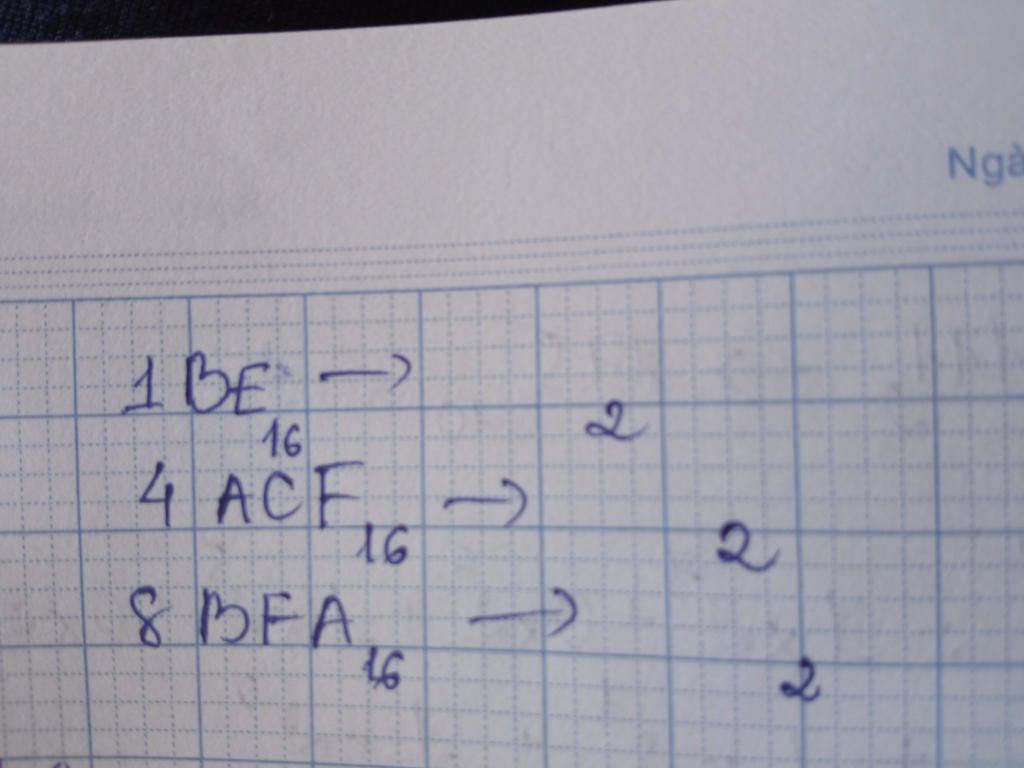 Ngà
1BE₁₆ → ₂
4 ACF₁₆ → ₂
8 BFA₁₆ → ₂